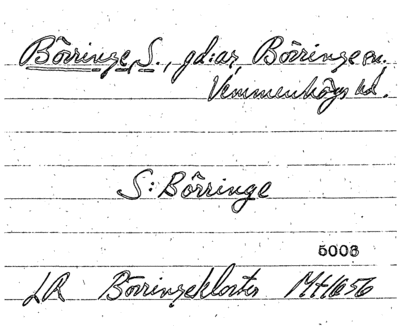 Börringe, S., gd:ar, Börringe sn.
Vemmenhögs hd.
S: Börringe
5006
LR Börringekloster MH1656